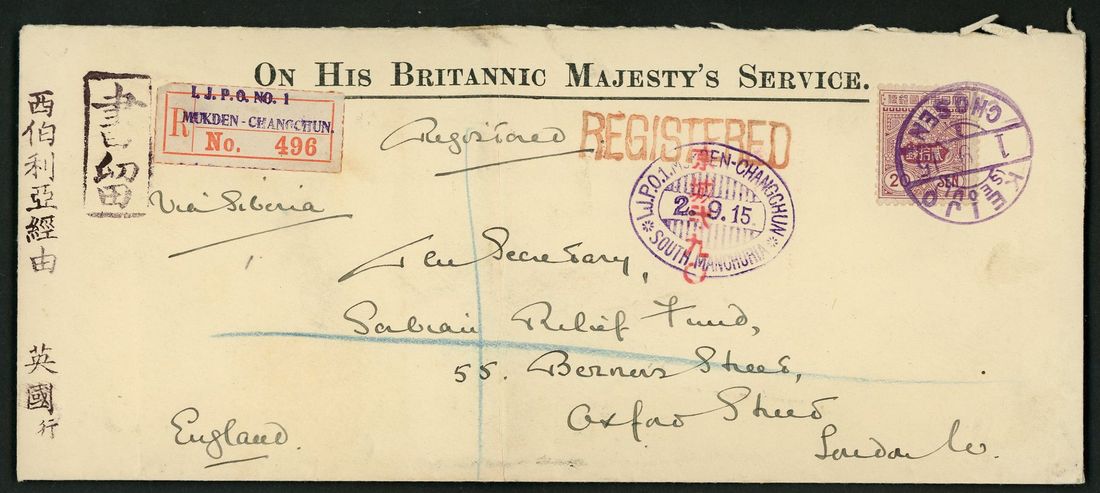 ON HIS BRITANNIC MAJESTY'S SERVICE.
西伯利亞經由
英國行
書留
I. J. P. O. NO. 1
MUKDEN - CHANGCHUN.
R No. 496
Registered
REGISTERED
Via Siberia
I.J.P.O.1.MUKDEN-CHANGCHUN
2.9.15
SOUTH MANCHURIA
貳拾錢
20 SEN
KEIJO
CHOSEN
The Secretary,
Serbian Relief Fund,
55. Berners Street,
Oxford Street
London W.
England.